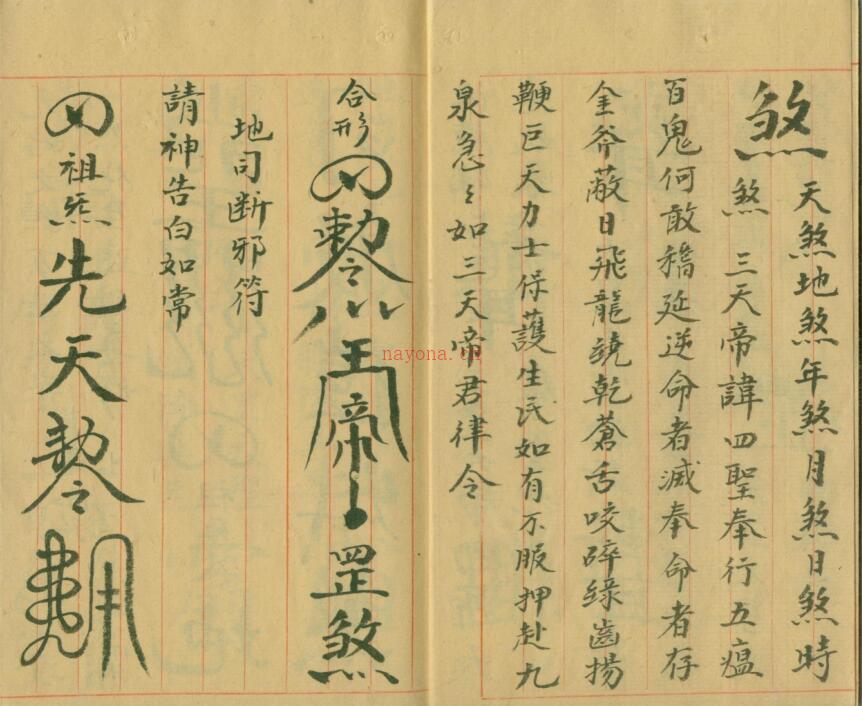 煞 天煞地煞年煞月煞日煞時
煞 三天帝諱四聖奉行五瘟
百鬼何敢稽延逆命者滅奉命者存
金斧蔽日飛龍遶乾蒼舌咬碎綠齒揚
鞭巨天力士保護生民如有不服押赴九
泉急々如三天帝君律令
合形
敕令 王帝 罡煞
地司断邪符
請神告白如常
祖炁先天敕令
nayona.cn